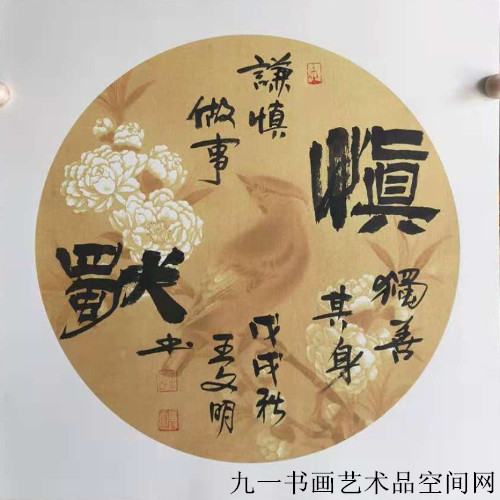 慎
獨
謙慎
做事
獨善
其身
戊戌秋
王文明
书
九一书画艺术品空间网